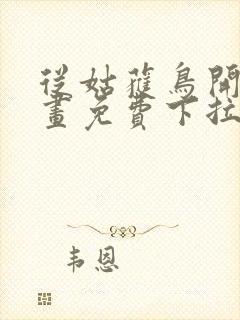 從姑蘿鳥開
畫免費下拉
韦恩